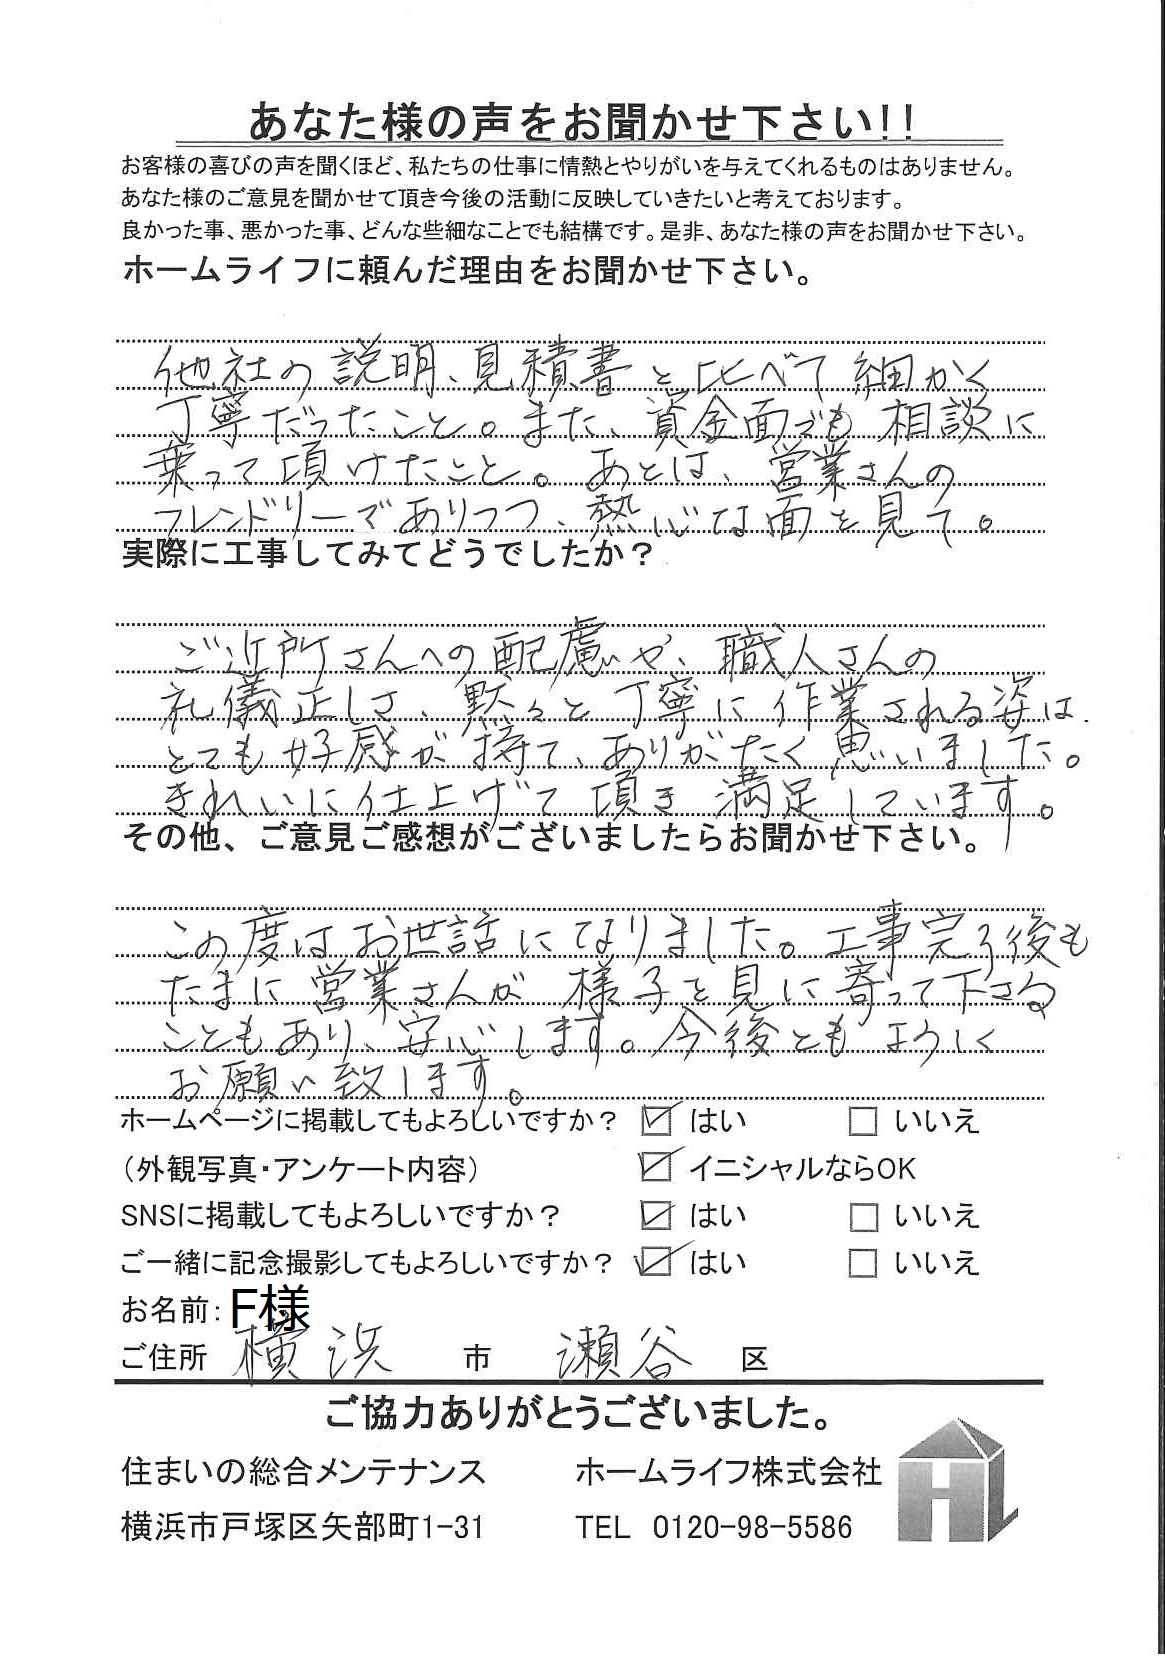 あなた様の声をお聞かせ下さい!!
お客様の喜びの声を聞くほど、私たちの仕事に情熱とやりがいを与えてくれるものはありません。
あなた様のご意見を聞かせて頂き今後の活動に反映していきたいと考えております。
良かった事、悪かった事、どんな些細なことでも結構です。是非、あなた様の声をお聞かせ下さい。
ホームライフに頼んだ理由をお聞かせ下さい。
他社の説明、見積書と比べて細かく
丁寧だったこと。また、資金面でも相談に
乗って頂けたこと。あとは、営業さんの
フレンドリーでありつつ、熱心な面を見て。
実際に工事してみてどうでしたか？
ご近所さんへの配慮や、職人さんの
礼儀正しさ、黙々と丁寧に作業される姿は、
とても好感が持て、ありがたく思いました。
きれいに仕上げて頂き満足しています。
その他、ご意見ご感想がございましたらお聞かせ下さい。
この度はお世話になりました。工事完了後も
たまに営業さんが様子を見に寄って下さる
こともあり、安心します。今後ともよろしく
お願い致します。
ホームページに掲載してもよろしいですか？ はい いいえ
（外観写真・アンケート内容） イニシャルならOK
SNSに掲載してもよろしいですか？ はい いいえ
ご一緒に記念撮影してもよろしいですか？ はい いいえ
お名前：F様
ご住所 横浜 市 瀬谷 区
ご協力ありがとうございました。
住まいの総合メンテナンス ホームライフ株式会社
横浜市戸塚区矢部町1-31 TEL 0120-98-5586
HL